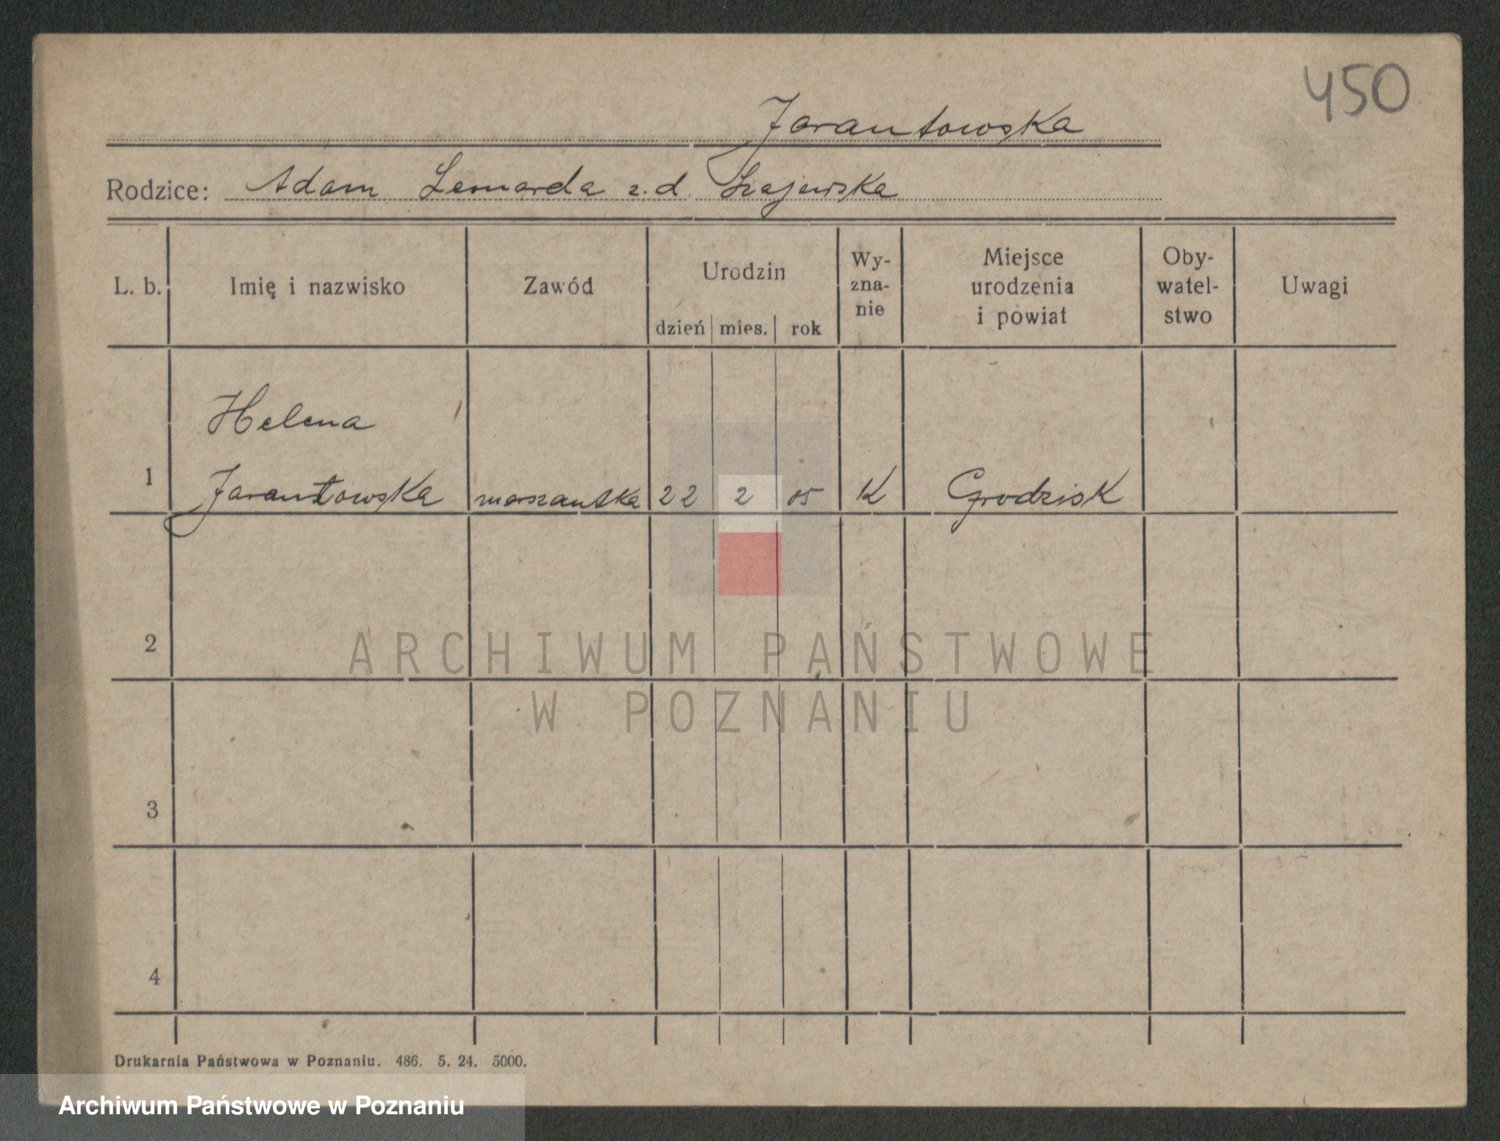 450
Jarantowska
Rodzice: Adam Leonarda z.d. Szajewska
L. b. Imię i nazwisko Zawód Urodzin dzień mies. rok Wy-zna-nie Miejsce urodzenia i powiat Oby-watel-stwo Uwagi
Helena
1 Jarantowska marszantka 22 2 05 K Grodzisk
2
ARCHIWUM PAŃSTWOWE
W POZNANIU
3
4
Drukarnia Państwowa w Poznaniu. 486. 5. 24. 5000.
Archiwum Państwowe w Poznaniu